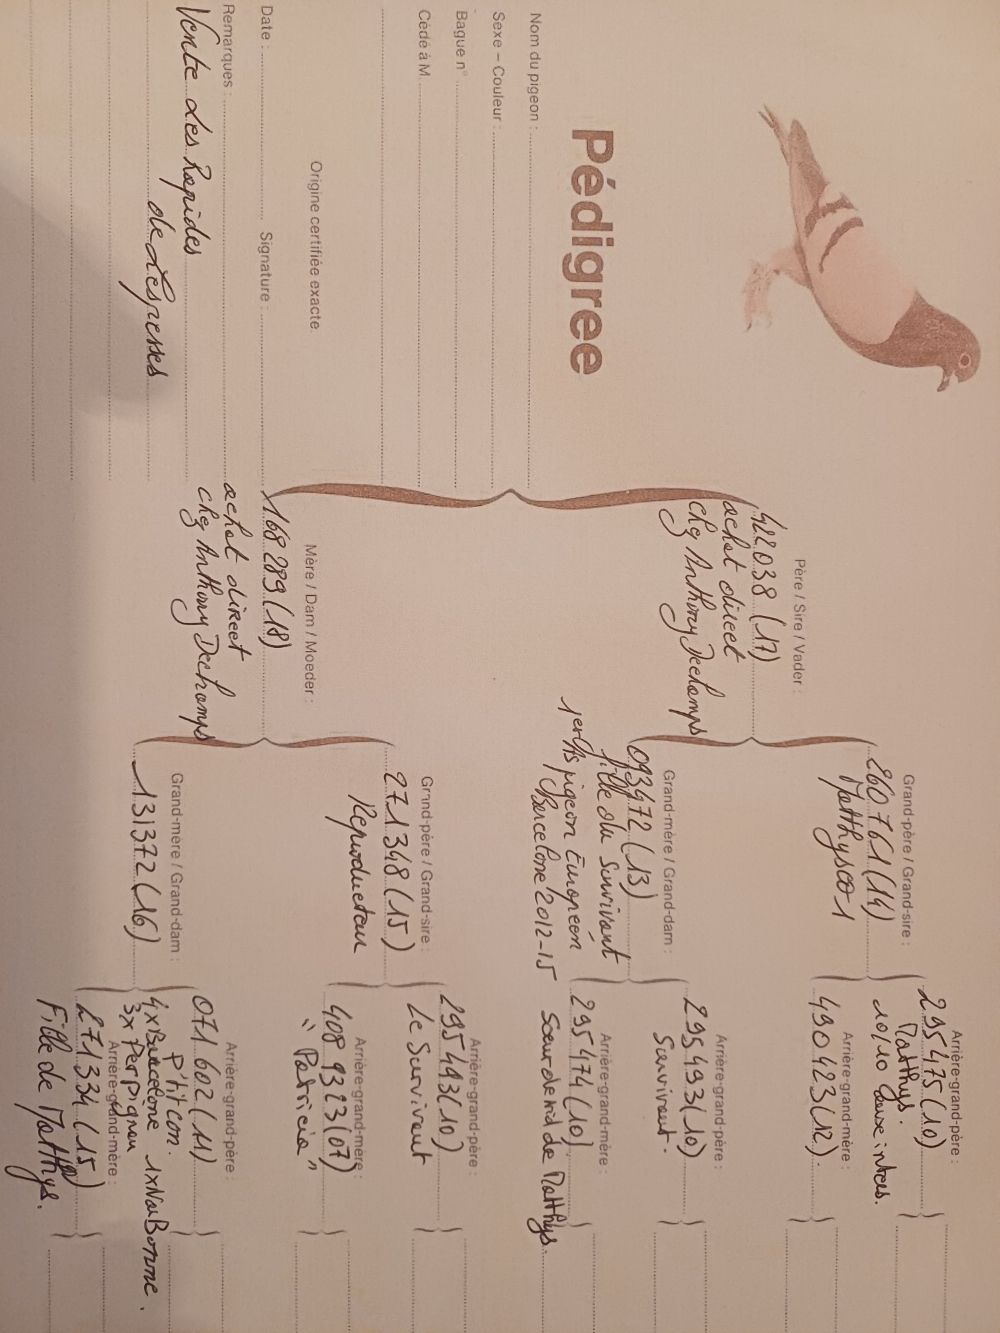 Pédigree
Nom du pigeon :
Sexe – Couleur :
Bague n°
Cédé à M.
Origine certifiée exacte
Date :
Signature :
Remarques :
Vente des Rapides
de Lespesses
Père / Sire / Vader :
422038 (17)
achat direct
chez Anthony Dechamps
Mère / Dam / Moeder :
168 289 (18)
achat direct
chez Anthony Dechamps
Grand-père / Grand-sire :
260 761 (14)
Matthysoo1
Grand-mère / Grand-dam :
093472 (13)
fille du Survivant
1er As pigeon Européen
Barcelone 2012-15
Grand-père / Grand-sire :
271 348 (15)
Reproducteur
Grand-mère / Grand-dam :
131372 (16)
Arrière-grand-père :
295475 (10)
Matthys.
10/10
Arrière-grand-mère :
490423 (12).
Arrière-grand-père :
295493 (10)
Survivant.
Arrière-grand-mère :
295474 (10)
Sœur de nid de Matthys.
Arrière-grand-père :
295493 (10)
Le Survivant
Arrière-grand-mère :
408 9323 (07)
" Patricia "
Arrière-grand-père :
071 602 (11)
P'tit con.
4x Barcelone 1x NarBonne.
3x Perpignan
Arrière-grand-mère :
271 334 (15)
Fille de Matthys.